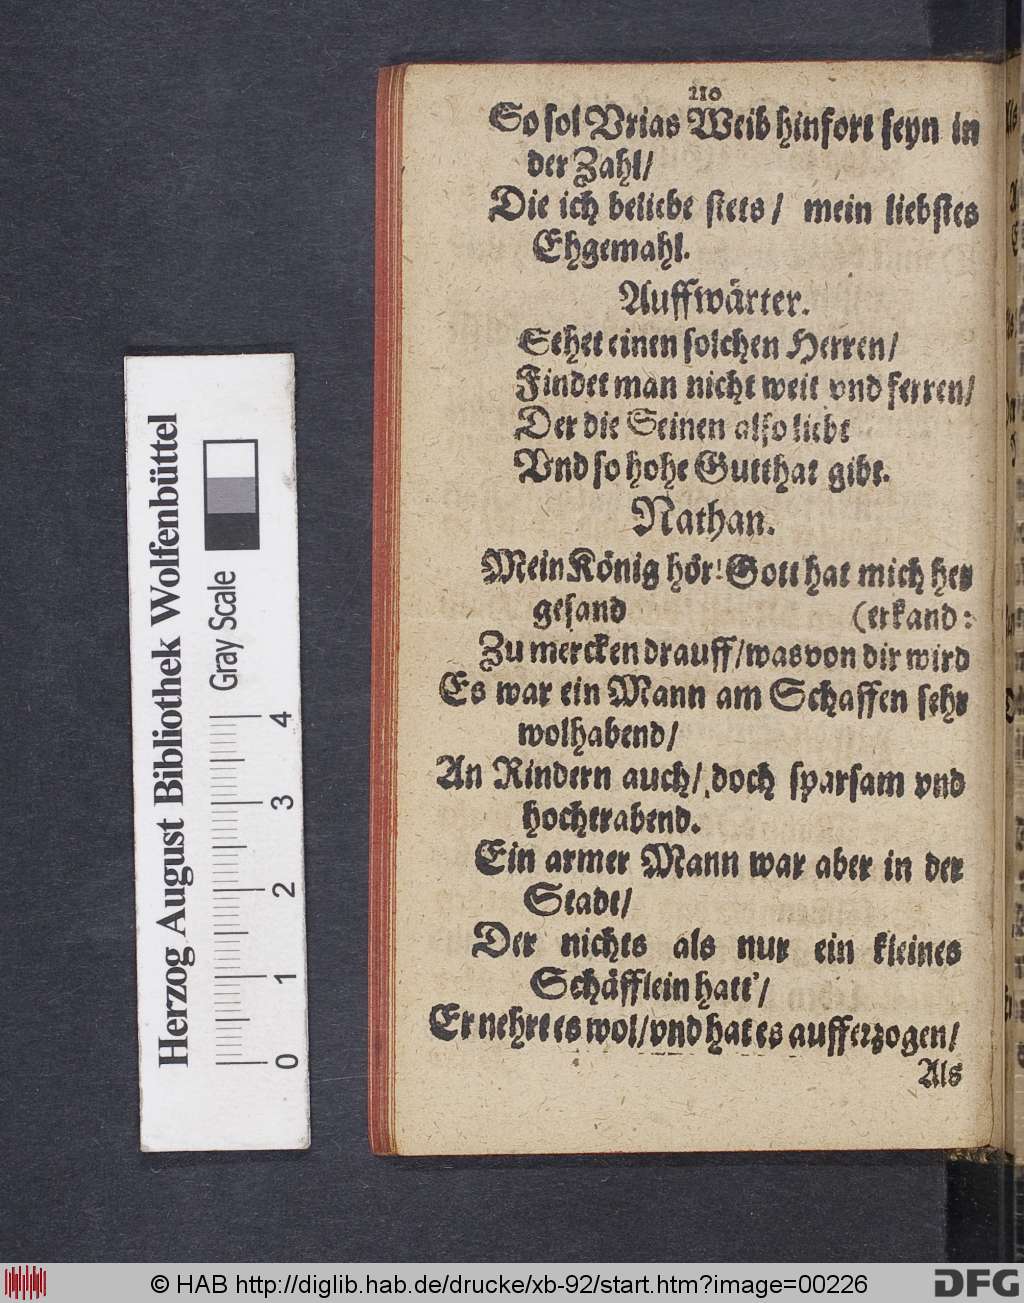 110
So sol Vrias Weib hinfort seyn in
der Zahl/
Die ich beliebe stets/ mein liebstes
Ehgemahl.
Auffwärter.
Sehet einen solchen Herren/
Findet man nicht weit vnd ferren/
Der die Seinen also liebt
Vnd so hohe Gutthat gibt.
Nathan.
Mein König hör! Gott hat mich her
gesand (erkand:
Zu mercken drauff/was von dir wird
Es war ein Mann am Schaffen sehr
wolhabend/
An Rindern auch/ doch sparsam vnd
hochtrabend.
Ein armer Mann war aber in der
Stadt/
Der nichts als nur ein kleines
Schäfflein hatt'/
Er nehrt es wol/vnd hat es aufferzogen/
Als
Herzog August Bibliothek Wolfenbüttel
Gray Scale
0 1 2 3 4
© HAB http://diglib.hab.de/drucke/xb-92/start.htm?image=00226
DFG